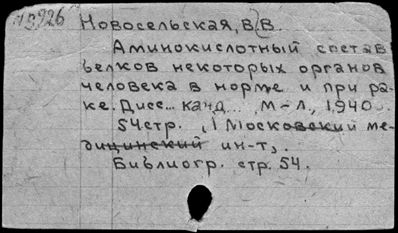 Новосельская, В.В.
Аминокислотный состав
белков некоторых органов
человека в норме и при ра-
ке. Дисс... канд... М-Л., 1940.
54стр. (I Московский ме-
дицинский ин-т).
Библиогр. стр. 54.